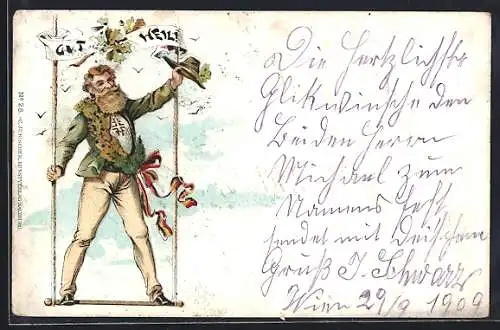 GUT HEIL!
Die Hertzlichste
Glikwinsche den
Beiden Herrn
Michael zum
Namens fest
sendet mit Deutschem
Gruß J. Schwarz
Wien 29/9 1909
No 28